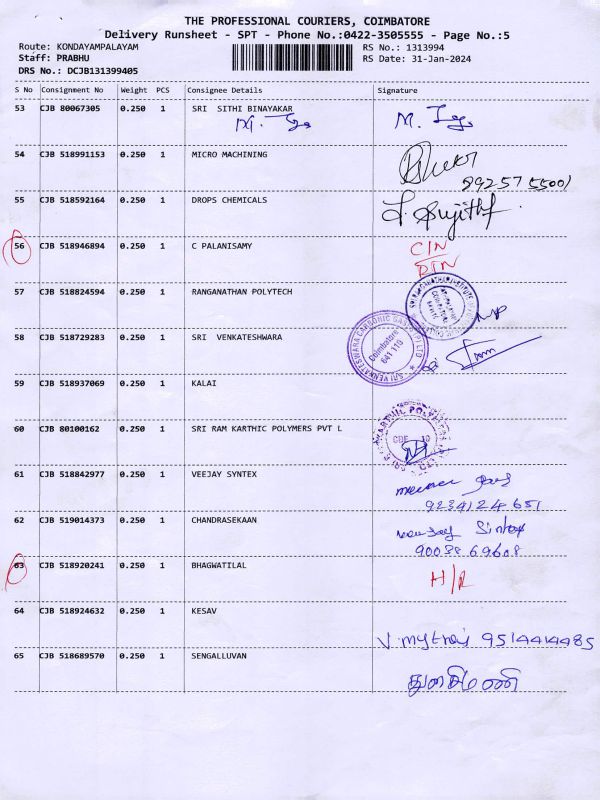 THE PROFESSIONAL COURIERS, COIMBATORE
Delivery Runsheet - SPT - Phone No.:0422-3505555 - Page No.:5
Route: KONDAYAMPALAYAM RS No.: 1313994
Staff: PRABHU RS Date: 31-Jan-2024
DRS No.: DCJB131399405
S No Consignment No Weight PCS Consignee Details Signature
53 CJB 80067305 0.250 1 SRI SITHI BINAYAKAR
54 CJB 518991153 0.250 1 MICRO MACHINING
55 CJB 518592164 0.250 1 DROPS CHEMICALS
56 CJB 518946894 0.250 1 C PALANISAMY C/N
57 CJB 518824594 0.250 1 RANGANATHAN POLYTECH
58 CJB 518729283 0.250 1 SRI VENKATESHWARA
SRI VENKATESWARA CARBONIC GASES (P) LTD
Coimbatore
641 110
59 CJB 518937069 0.250 1 KALAI
60 CJB 80100162 0.250 1 SRI RAM KARTHIC POLYMERS PVT L
61 CJB 518842977 0.250 1 VEEJAY SYNTEX
9234124651
62 CJB 519014373 0.250 1 CHANDRASEKAAN
9003869608
63 CJB 518920241 0.250 1 BHAGWATILAL
64 CJB 518924632 0.250 1 KESAV
9514414485
65 CJB 518689570 0.250 1 SENGALLUVAN